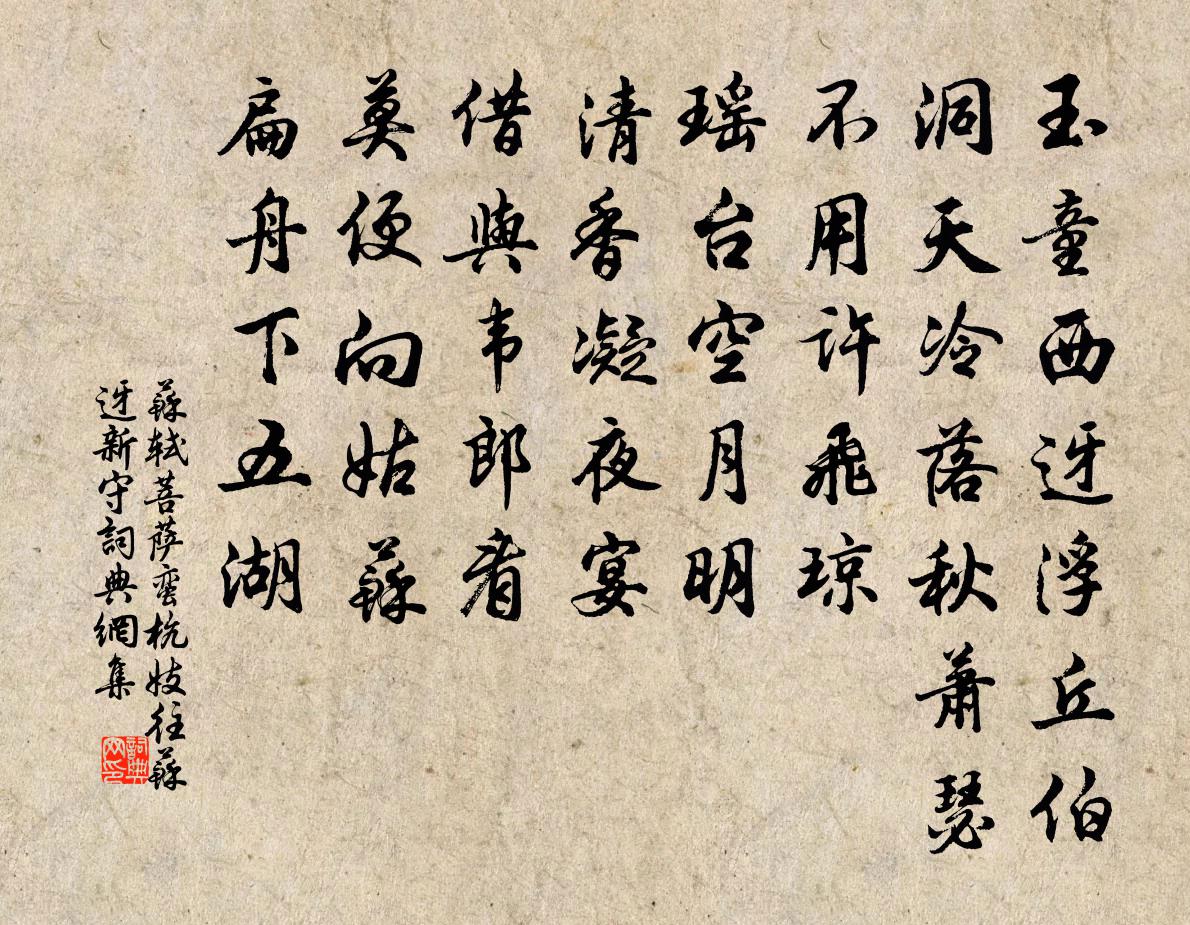 玉童西迓浮丘伯
洞天冷落秋萧瑟
不用许飛琼
瑶台空月明
清香凝夜宴
借與韦郎看
莫便向姑蘇
扁舟下五湖
蘇轼菩萨蛮杭妓往蘇
迓新守詞典網集
詞典
网印